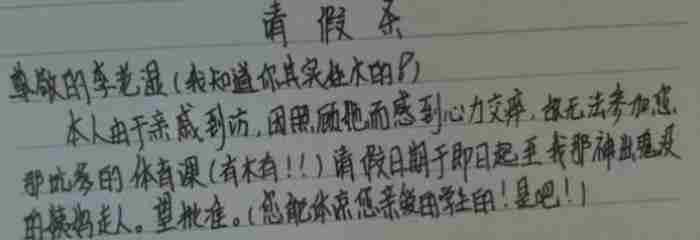 请假条
尊敬的李老湿(我知道你其实姓木的!)
本人由于亲戚到访,因照顾她而感到心力交瘁,故无法参加您
那坑爹的体育课(有木有!!)请假日期于即日起至我那神出鬼没
的姨妈走人。望批准。(您能体谅您亲爱的学生的!是吧!)